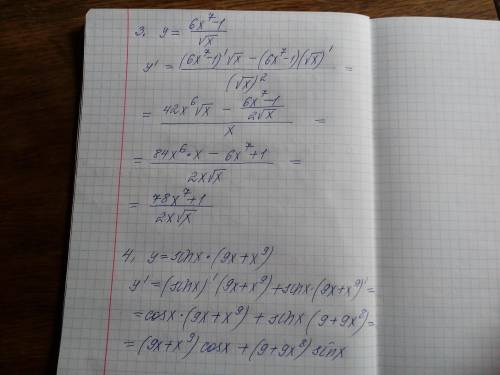 3. y = (6x⁷-1)/√x
y' = ((6x⁷-1)'√x - (6x⁷-1)(√x)')/(√x)² =
= (42x⁶√x - (6x⁷-1)/(2√x))/x =
= (84x⁶·x - 6x⁷+1)/(2x√x) =
= (78x⁷+1)/(2x√x)
4. y = sinx·(9x+x⁹)
y' = (sinx)'(9x+x⁹)+sinx·(9x+x⁹)' =
= cosx·(9x+x⁹) + sinx(9+9x⁸) =
= (9x+x⁹)cosx + (9+9x⁸)sinx